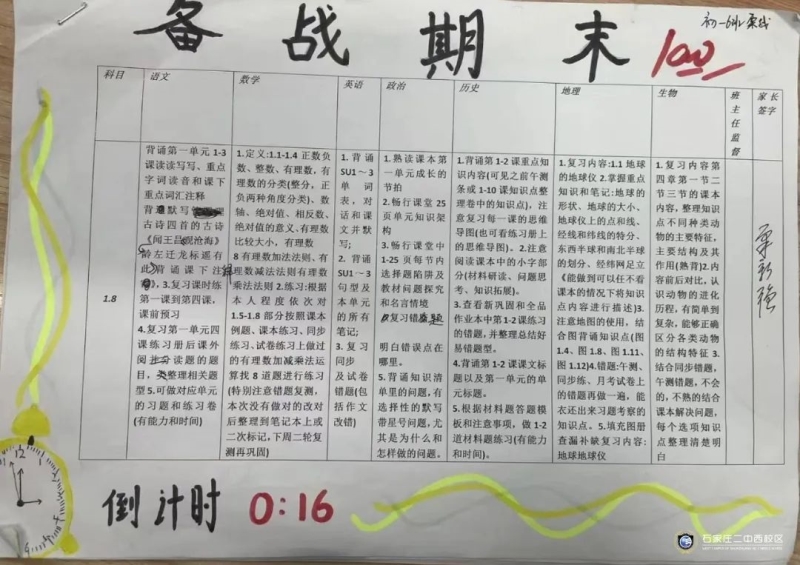 备战期末
100
科目
语文
数学
英语
政治
历史
地理
生物
班主任监督
家长签字
1.8
背诵第一单元1-3
课读读写写、重点
字词读音和课下
重点词汇注释
背 默写
古诗四首的古诗
龄左迁龙标遥有
背诵课下注
3.复习课时练
第一课到第四课，
课前预习
4.复习第一单元四
课练习册后课外
阅 读题的题
目， 整理相关题
型5.可做对应单元
的习题和练习卷
(有能力和时间)
1.定义:1.1-1.4 正数负
数、整数、有理数，有
理数的分类(整分，正
负两种角度分类)、数
轴、绝对值、相反数、
绝对值的意义、有理数
比较大小，有理数
8 有理数加法法则、有
理数减法法则有理数
乘法法则 2.练习:根据
本人程度依次对
1.5-1.8 部分按照课本
例题、课本练习、同步
练习、试卷练习上做过
的有理数加减乘法运
算找 8 道题进行练习
(特别注意错题复测，
本次没有做对的改对
后整理到笔记本上或
二次标记，下周二轮复
测再巩固)
1. 背诵
SU1～3
单词
表，对
话和课
文并默
写;
2. 背诵
SU1～3
句型及
本单元
的所有
笔记;
3. 复习
同步
及试卷
错题(包
括作文
改错)
1.熟读课本第
一单元成长的
节拍
2.畅行课堂 25
页单元知识架
构
3.畅行课堂中
1-25 页每节内
选择题陷阱及
教材问题探究
和名言情境
复习错题
明白错误点在
哪里。
5.背诵知识清
单里的问题，有
选择性的默写
带星号问题，尤
其是为什么和
怎样做的问题。
1.背诵第 1-2课重点知
识内容(可见之前午测
条或 1-10 课知识点整
理卷中的知识点)，注
意复习每一课的思维
导图(也可看练习册上
的思维导图)。2.注意
阅读课本中的小字部
分(材料研读、问题思
考、知识拓展)。
3.查看新巩固和全品
作业本中第1-2课练习
的错题，并整理总结好
易错题型。
4.背诵第1-2课课文标
题以及第一单元的单
元标题。
5.根据材料题答题模
板和注意事项，做 1-2
道材料题练习(有能力
和时间)。
1.复习内容:1.1 地球
的地球仪 2.掌握重点
知识和笔记:地球的
形状、地球的大小、
地球仪上的点和线、
经线和纬线的特分、
东西半球和南北半球
的划分、经纬网足立
《能做到可以任不看
课本的情况下将知识
点内容进行描述)3.
注意地图的使用，结
合图背诵知识点(图
1.4、图 1.8、图 1.11、
图 1.12)4.错题:午测、
同步练、月考试卷上
的错题再做一遍，能
衣还出来习题考察的
知识点。5.填充图册
查漏补缺复习内容:
地球地球仪
1.复习内容第
四章第一节二
节三节的课本
内容，整理知识
点不同种类动
物的主要特征，
主要结构及其
作用(熟背)2.内
容前后对比，认
识动物的进化
历程，有简单到
复杂，能够正确
区分各类动物
的结构特征 3.
结合同步错题，
午测错题，不会
的，不熟的结合
课本解决问题，
每个选项知识
点整理清楚明
白
12
倒计时 0:16
石家庄二中西校区